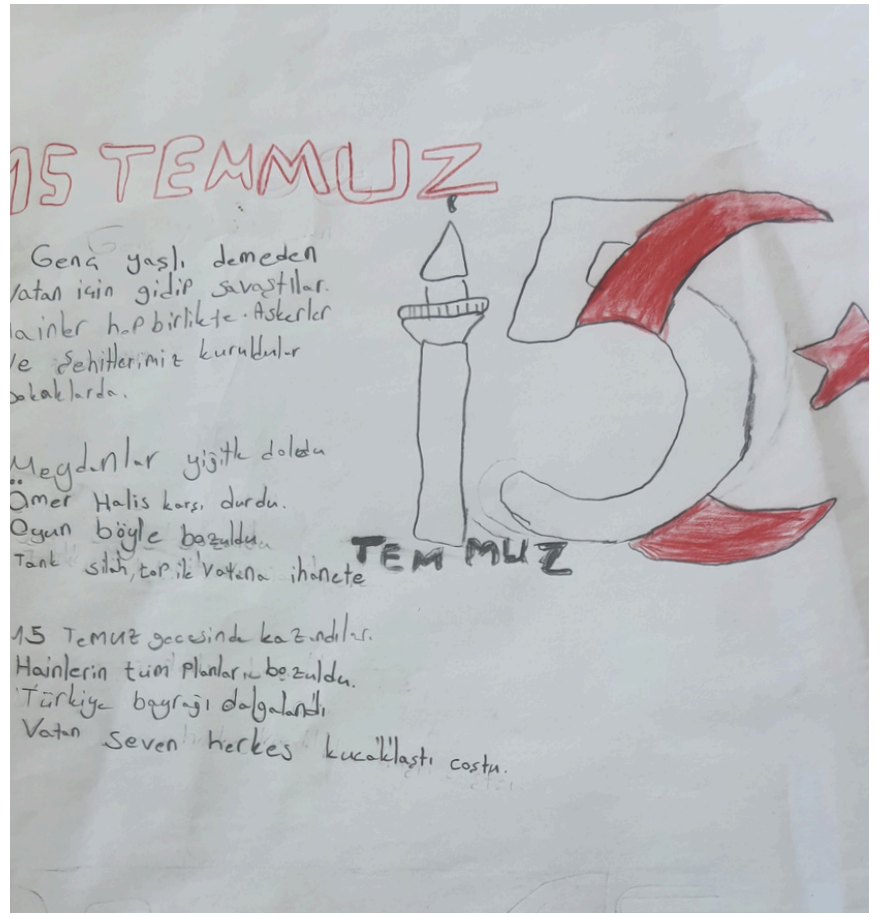 15 TEMMUZ
Genç yaşlı demeden
Vatan için gidip savaştılar.
ainler hep birlikte. Askerler
Ve Şehitlerimiz kuruldular
sokaklarda.
Meydanlar yiğitle doldu
Ömer Halis karşı durdu.
Oyun böyle bozuldu.
Tank silah, top ile vatana ihanete
15 Temuz gecesinde kazındılar.
Hainlerin tüm Planları bozuldu.
Türkiye bayrağı dalgalandı
Vatan seven herkes kucaklaştı coştu.
15
TEMMUZ